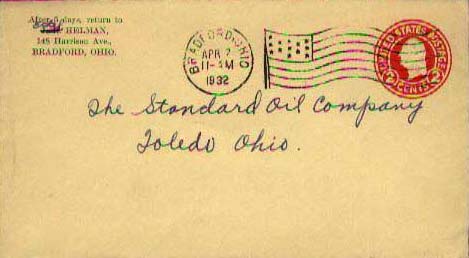 After 5 days, return to
HELMAN,
148 Harrison Ave.,
BRADFORD, OHIO.
BRADFORD, OHIO
APR 7
11-AM
1932
UNITED STATES POSTAGE
2 CENTS 2
The Standard Oil Company
Toledo Ohio.